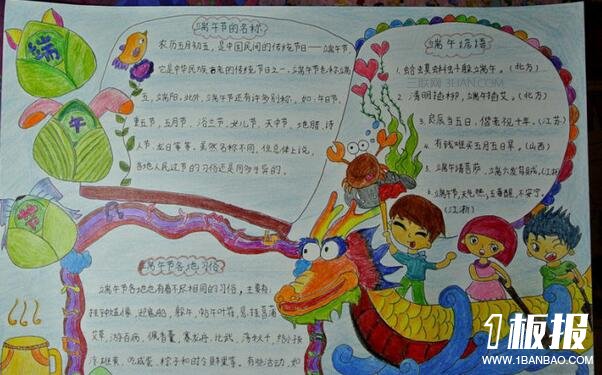 端
午
节
端午节的名称
农历五月初五，是中国民间的传统节日——端午节，
它是中华民族古老的传统节日之一。端午节也称端
五，端阳。此外，端午节还有许多别称，如：午日节、
重五节，五月节，浴兰节，女儿节，天中节、地腊、诗
人节、龙日等等。虽然名称不同，但总体上说，
各地人民过节的习俗还是同多于异的。
端午谚语
1. 蛤蟆蝌蚪躲端午。（北方）
2. 清明插柳，端午插艾。（北方）
3. 良辰当五日，偕老祝千年。（江苏）
4. 有钱难买五月五日旱。（山西）
5. 端午请菩萨，端六发乌贼。(江浙)
端午节，天气热；五毒醒，不安宁。
(江浙)
三联网 3LIAN.COM
端午节各地习俗
端午节各地也有着不尽相同的习俗，主要有：
挂钟馗像，迎鬼船，躲午，帖午叶符，悬挂菖蒲
艾草，游百病，佩香囊，赛龙舟，比武，荡秋千，给小孩
涂雄黄，吃咸蛋，粽子和时令鲜果等。有些活动，如
1板报
WWW.1BANBAO.COM